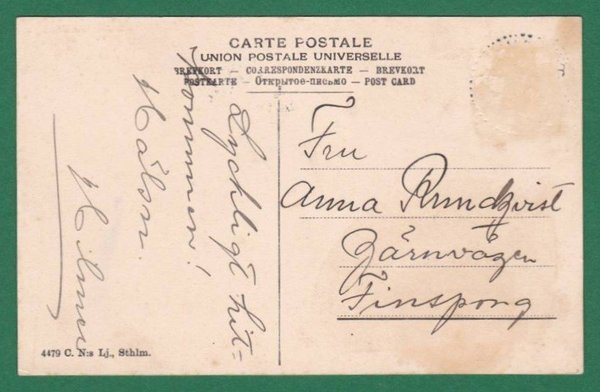 CARTE POSTALE
UNION POSTALE UNIVERSELLE
BREVKORT — CORRESPONDENZKARTE — BREVKORT
POSTKARTE — Открытое-письмо — POST CARD
Lyckligt hit-
kommen!
Hälsn.
Hilmer
Fru
Anna Rundqvist
Järnvägen
Finspong
4479 C. N:s Lj., Sthlm.